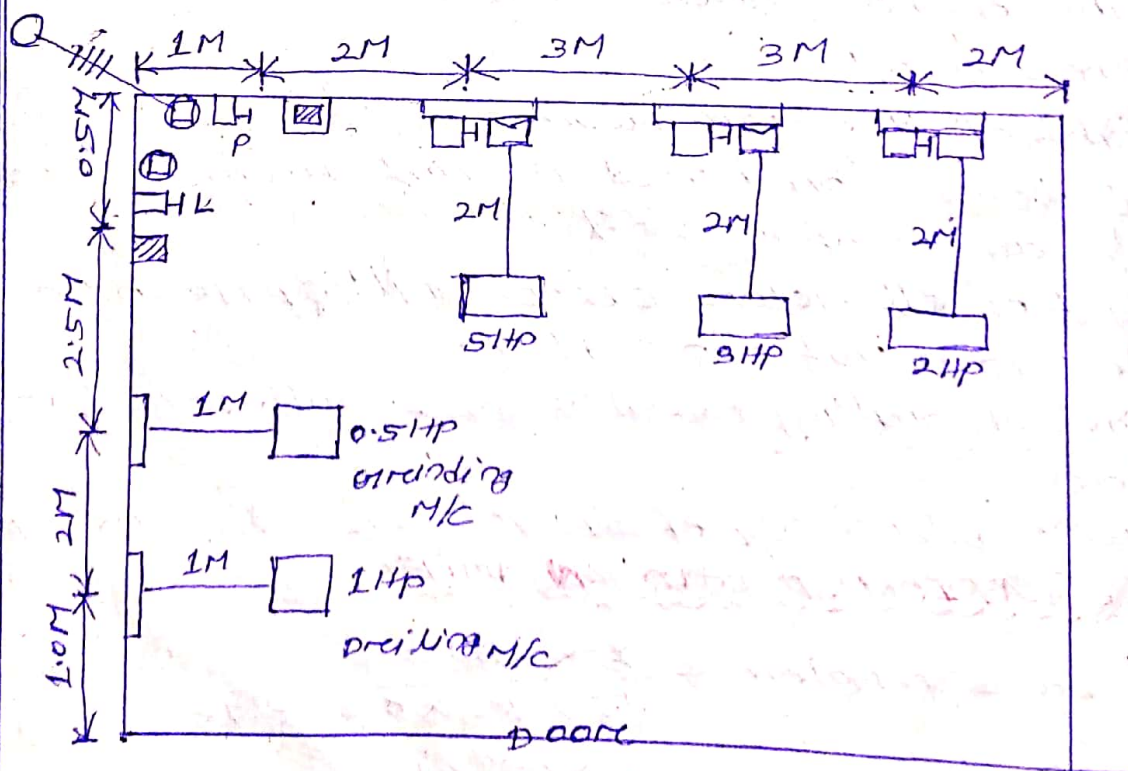 1M 2M 3M 3M 2M
P
0.5M
H L
2M 2M 2M
5HP 3HP 2HP
2.5M
1M
0.5HP
Grinding
M/C
2M
1M
1HP
Dreiling M/C
1.0M
Door